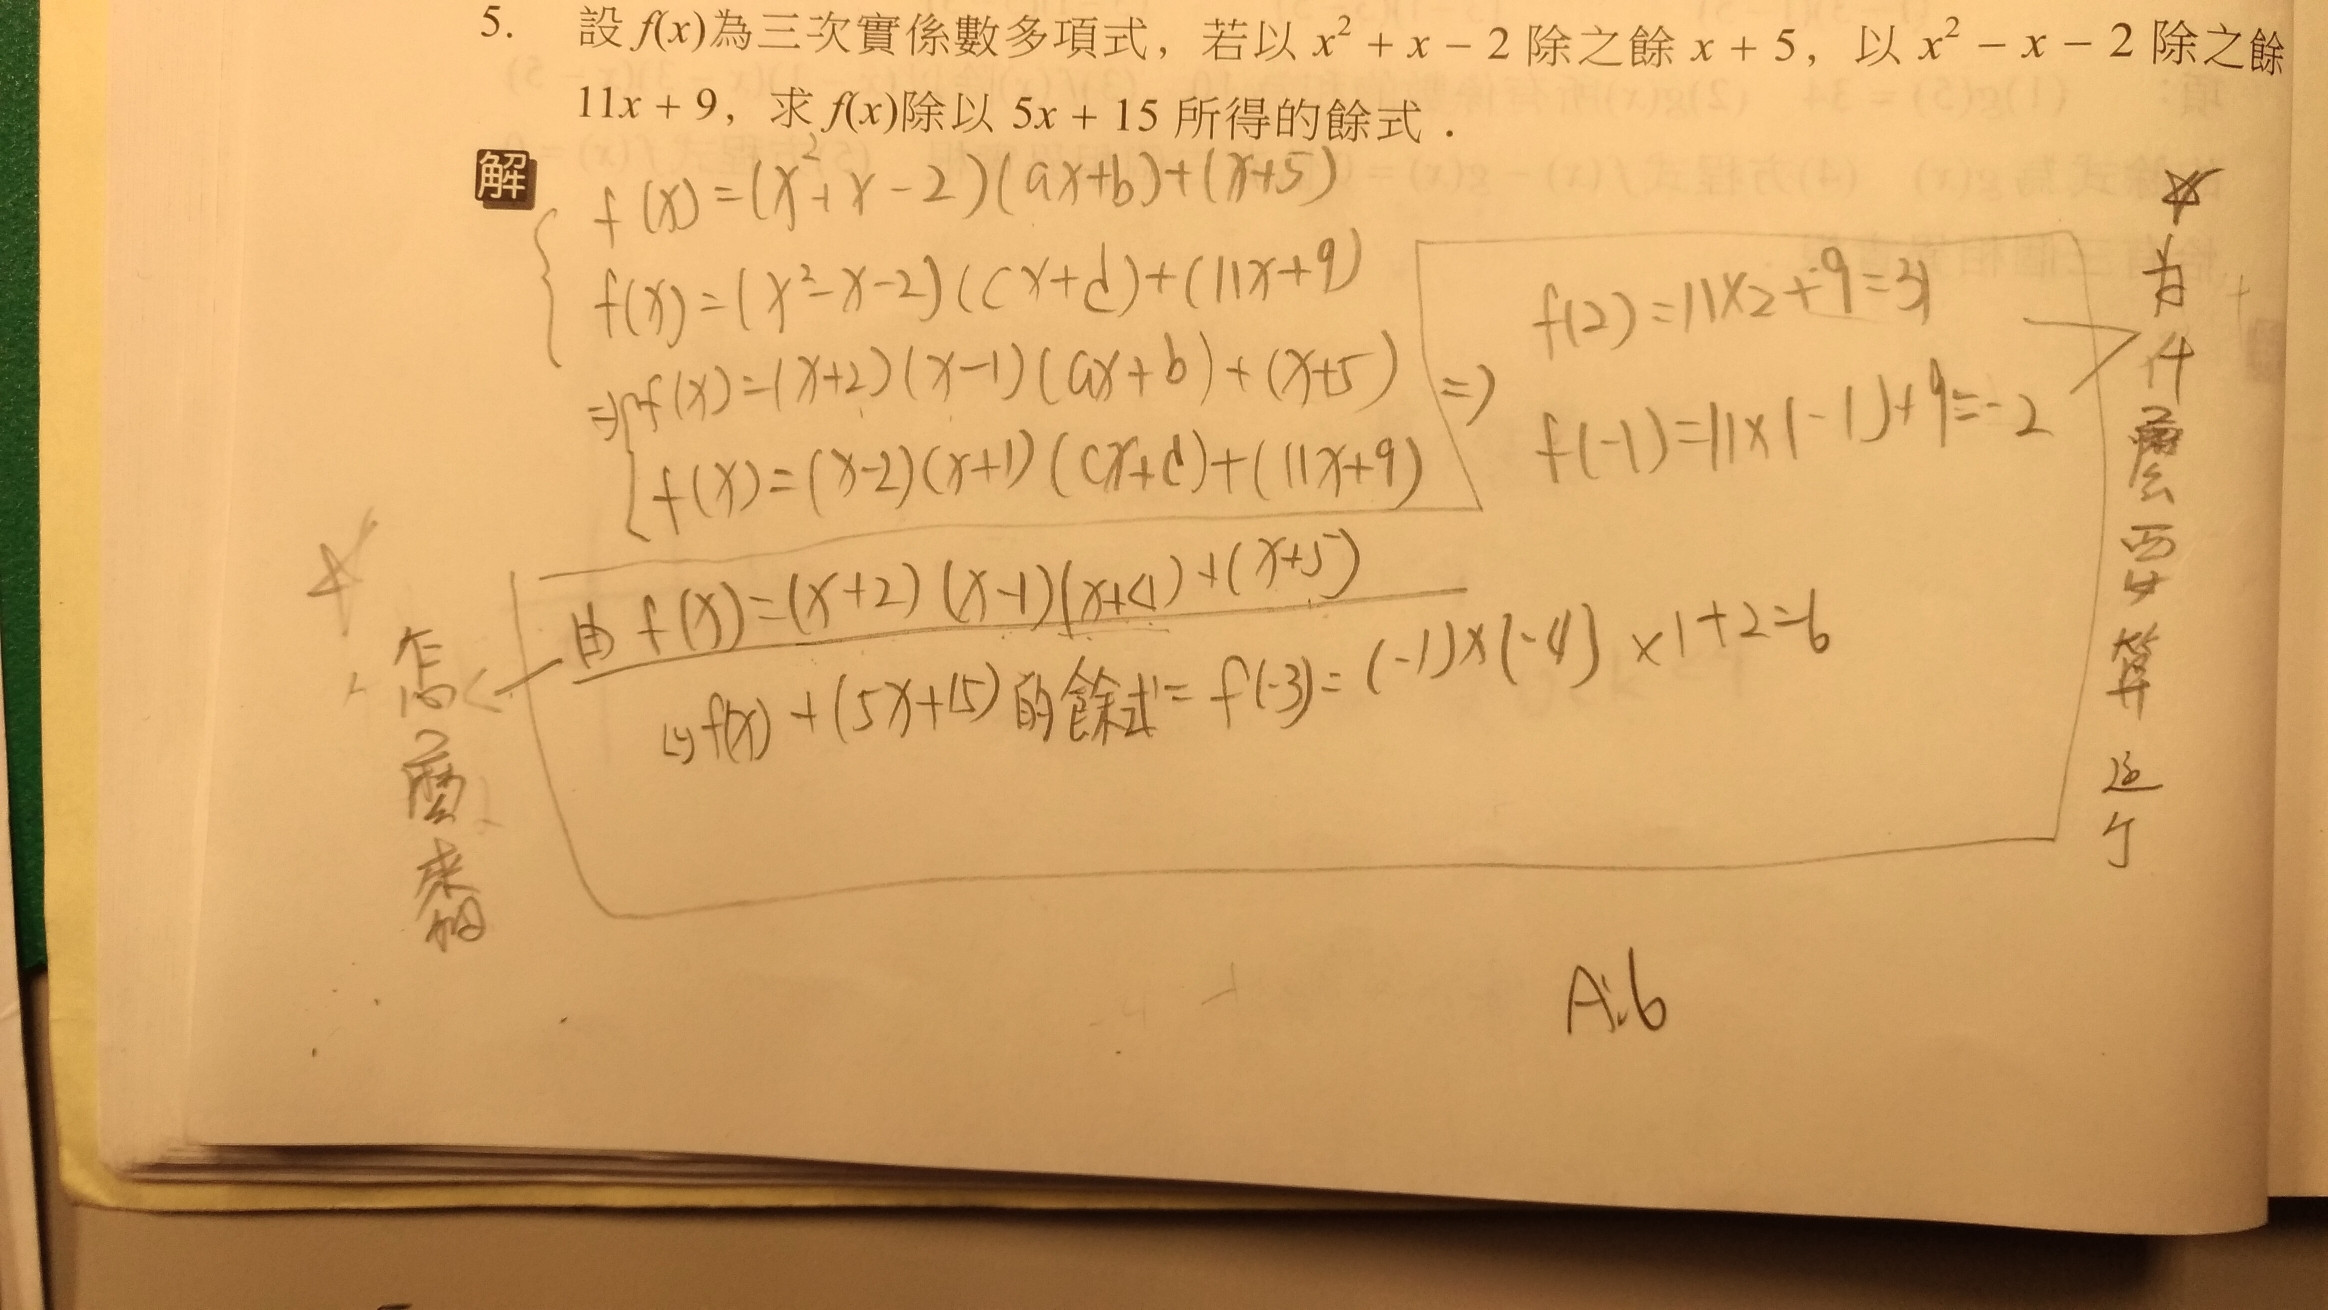 5. 設 f(x)為三次實係數多項式，若以 x² + x − 2 除之餘 x + 5，以 x² − x − 2 除之餘
11x + 9，求 f(x)除以 5x + 15 所得的餘式．
解
f(x)=(x²+x-2)(ax+b)+(x+5)
f(x)=(x²-x-2)(cx+d)+(11x+9)
⇒f(x)=(x+2)(x-1)(ax+b)+(x+5)
f(x)=(x-2)(x+1)(cx+d)+(11x+9)
⇒ f(2)=11×2+9=31
f(-1)=11×(-1)+9=-2
為什麼要算這個
由 f(x)=(x+2)(x-1)(x+4)+(x+5)
f(x)÷(5x+15)的餘式=f(-3)=(-1)×(-4)×1+2=6
怎麼來的
A:6